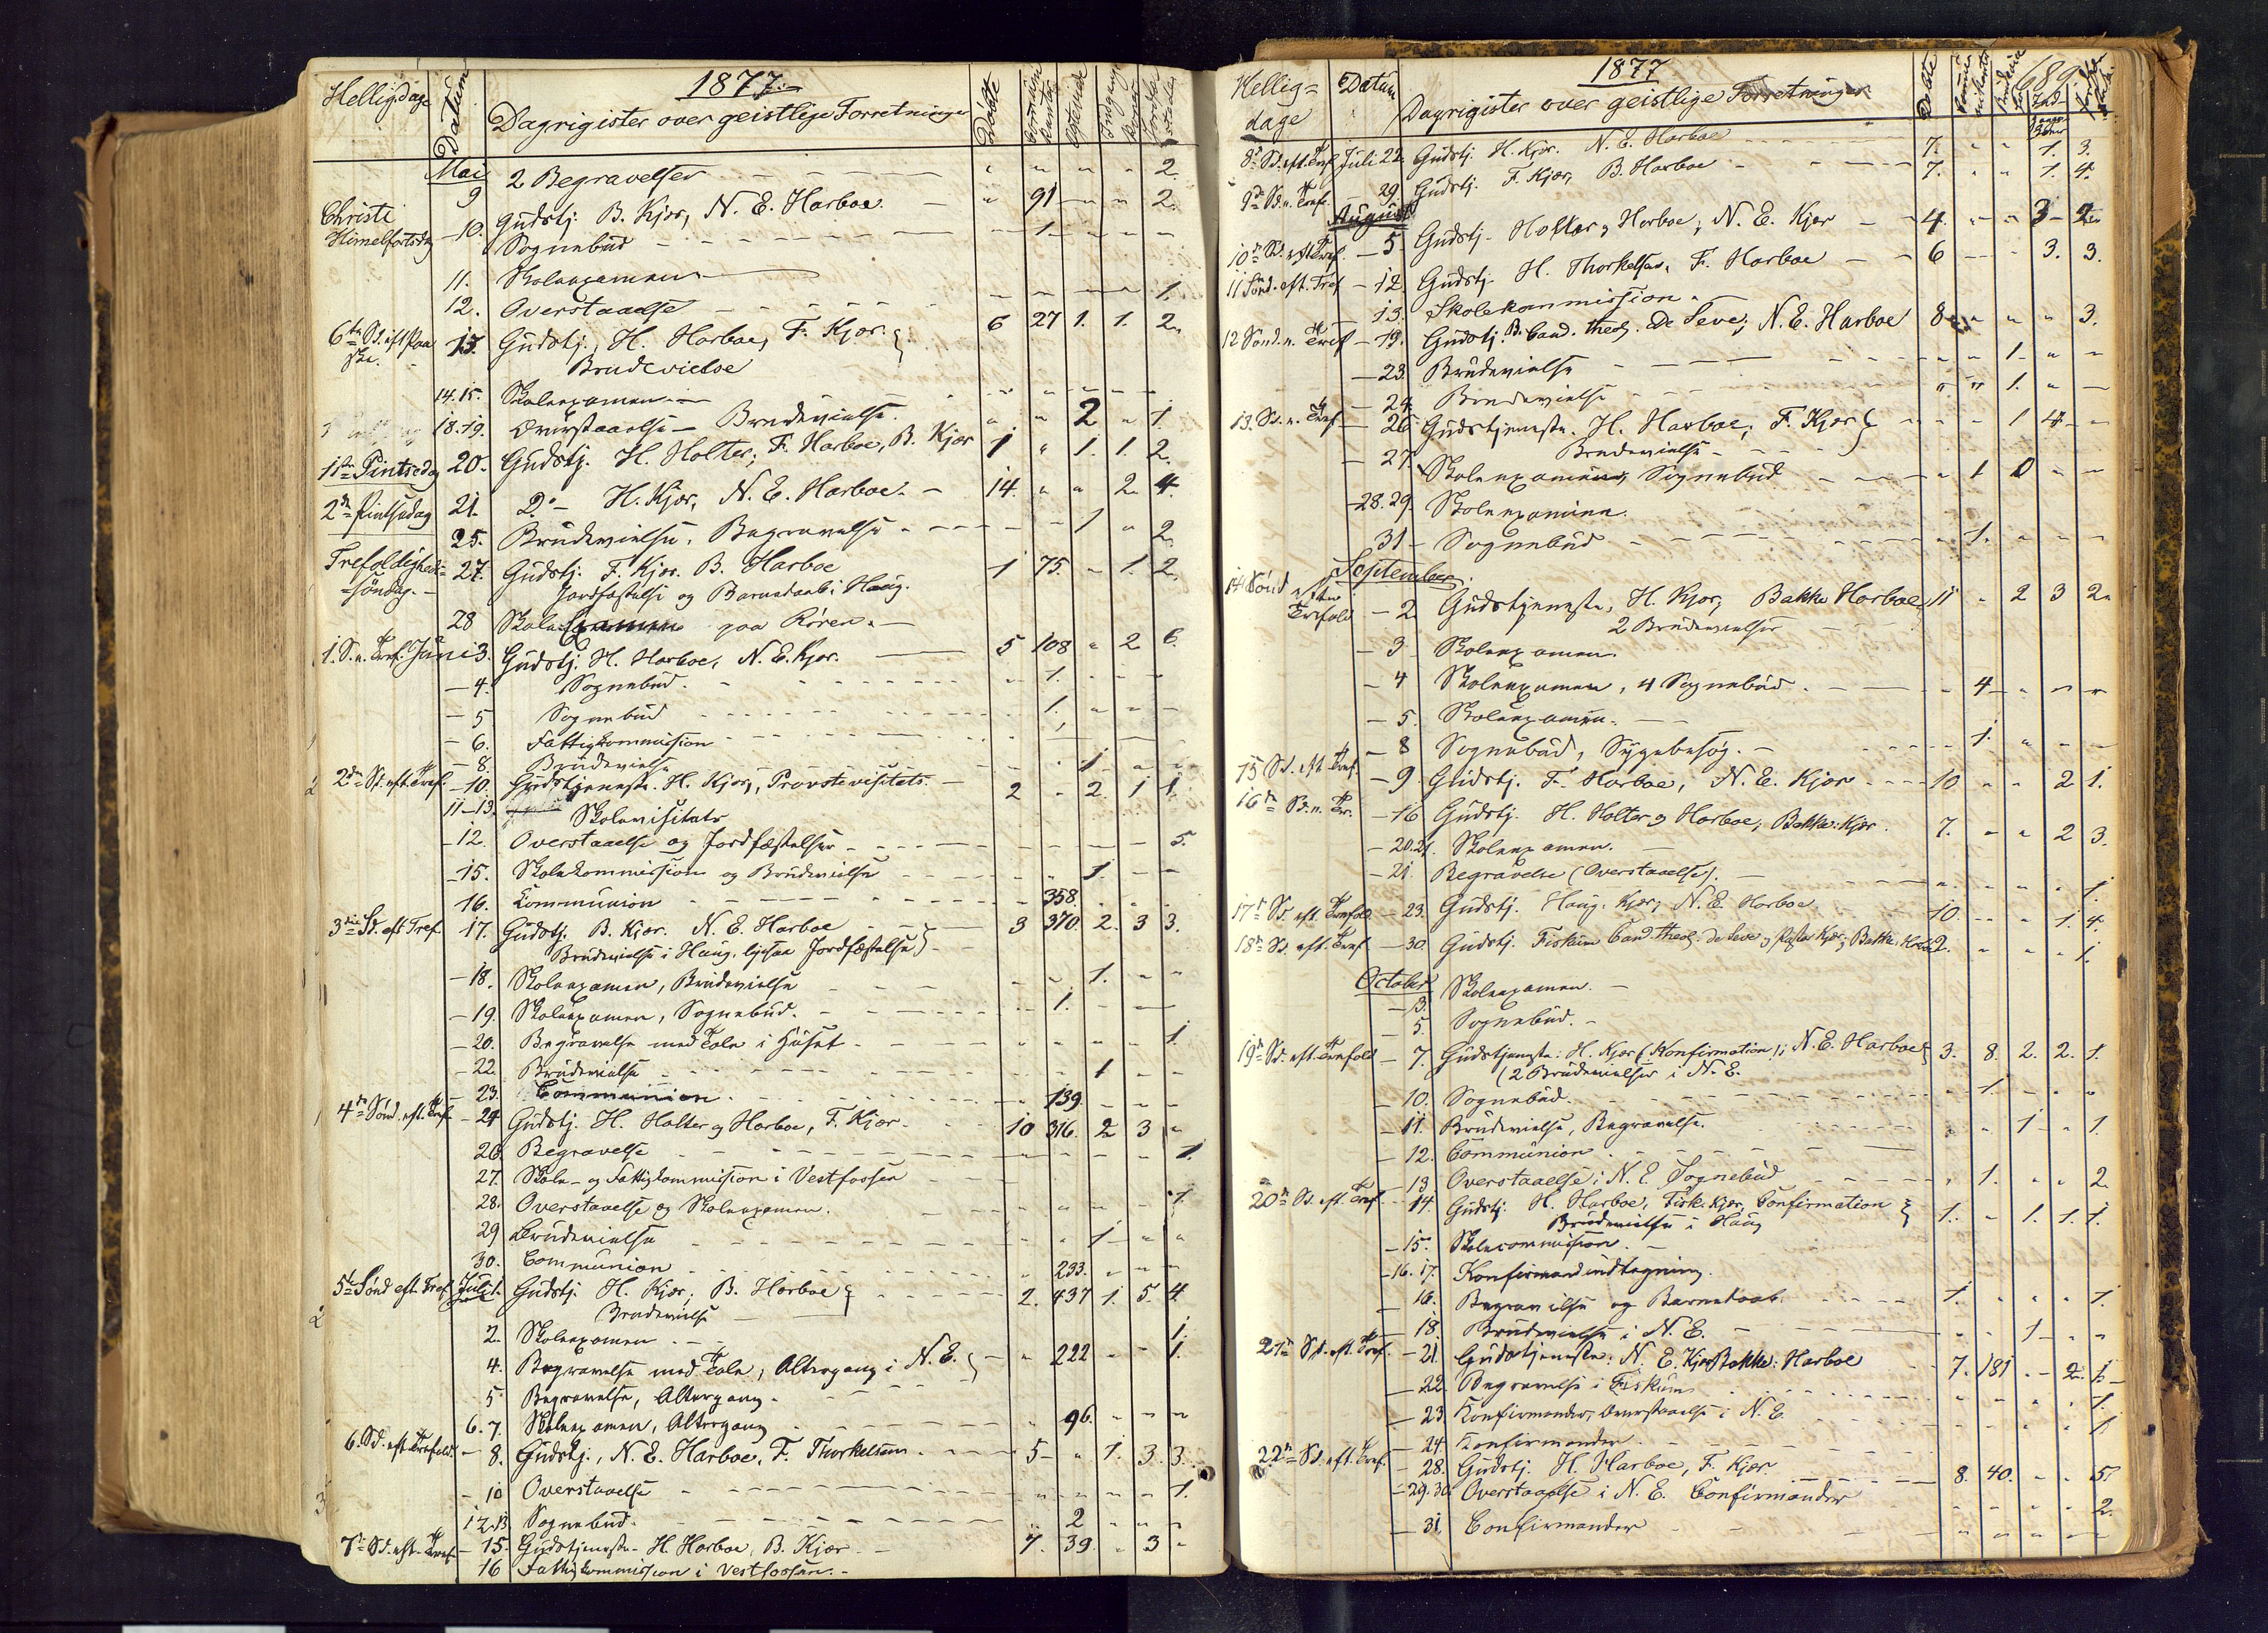 1877.
Helligdage Datum Dagrigister over geistlige Forretninger Döbte
Mai 2 Begravelser 2.
Christi 9
Himelfartsdag 10. Gudstj. B. Kjær, N. E. Harboe. " 91 " " 2.
Sognebud 1.
11. Skolexamen
12. Overstaaelse 1.
6te Sd. eft Paa 13. Gudstj., H. Harboe, F. Kjær. 6 27 1. 1. 2.
ske. Brudevielse
14.15. Skolexamen
18.19. Overstaaelse – Brudevielse. 2 " 1.
1ste Pintsedag 20. Gudstj. H. Holter, F. Harboe, B. Kjær 1 " 1. 1. 2.
2den Pintsedag 21. Do – H. Kjær, N. E. Harboe. 14. " " 2 4.
25. Brudevielse, Begravelse 1 " 2.
Trefoldigheds- 27. Gudstj. F. Kjær. B. Harboe 1 75. " 1. 2.
söndag. Jordfæstelse og Barnedaab i Haug.
28 Skolexamen paa Rören.
1. S. n. Tref. Juni 3. Gudstj. H. Harboe, N. E. Kjær. 5 108 " 2 6.
– 4. Sognebud. 1.
– 5 Sognebud 1.
– 6. Fattigkommission
– 8. Brudevielse 1
2den Sd. eft Tref. – 10. Gudstjeneste. H. Kjær, Provstevisitats. 2 - 2. 1 1.
11–13. Skolevisitats
– 12. Overstaaelse og Jordfæstelser 5.
– 15. Skolekommission og Brudevielse 1.
16. Communion 358.
3die Sd. eft Tref. 17. Gudstj. B. Kjær. N. E. Harboe 3 370. 2. 3 3.
Brudevielse i Haug, ligesaa Jordfæstelse
– 18. Skolexamen, Brudevielse 1.
– 19. Skolexamen, Sognebud. 1.
– 20. Begravelse med Tale i Huset 1
– 22. Brudevielse 1
– 23. Communion. 139.
4de Sönd. eft. Tref. – 24 Gudstj. H. Holter og Harboe, F. Kjær. 10 316. 2 3 "
26. Begravelse 1.
27. Skole- og Fattigkommission i Vestfossen
28. Overstaaelse og Skolexamen. 1
29 Brudevielse 1
30. Communion 233.
5te Sönd eft. Tref. Juli 1. Gudstj. H. Kjær, B. Harboe 2. 437 1. 5. 4.
Brudevielse
2. Skolexamen 1.
4. Begravelse med Tale, Altergang i N. E. " 222 " " 1.
5 Begravelse, Altergang.
6. 7 Skolexamen, Altergang 96.
6. Sd. eft Trefold. – 8. Gudstj., N. E. Harboe, F. Thorkelsen. 5 – " 1. 3. 3.
– 10 Overstaaelse 1.
12.13 Sognebud. 2
7de Sd. eft. Tref. – 15. Gudstjeneste. H. Harboe, B. Kjær 7. 39. " 3 "
16 Fattigkommission i Vestfossen.
1877
689
Hellig= Datum Dagrigister over geistlige Forretninger Döbte
dage
8de Sd. eft. Tref. Juli 22. Gudstj. H. Kjær. N. E. Harboe 7. " " 1. 3.
9de Sd. n. Tref. – 29 Gudstj. F. Kjær, B. Harboe 7. " " 1. 4.
August
10de Sd. eft. Tref. – 5 Gudstj. Holter og Harboe; N. E. Kjær 4. " " 3 – 2.
11 Sönd. eft. Tref – 12 Gudstj. H. Thorkelsen, F. Harboe 6 3. 3.
13. Skolekommission.
12 Sönd. n. Tref. – 19. Gudstj. B. Cand. theol. De Seve; N. E. Harboe 8 " " " 3.
– 23. Brudevielse 1 " "
– 24. Brudevielse " " 1. " –
13. Sd. n. Tref. – 26 Gudstjeneste. H. Harboe; F. Kjær 1 4
Brudevielse
– 27. Skolexamen, Sognebud 1
28.29. Skolexamina.
31 – Sognebud 1.
September.
14 Sönd efter Trefold – 2 Gudstjeneste, H. Kjær, Bakke Harboe 11 - 2 3 2.
2 Brudevielser
– 3 Skolexamen.
– 4 Skolexamen, 4 Sognebud. 4
– 5. Skolexamen.
– 8 Sognebud, Sygebesög. 1.
15 Sd. eft Tref. – 9. Gudstj. F. Harboe, N. E. Kjær 10 " " 2 1.
16de Sd. n. Tr. – 16 Gudstj. H. Holter og Harboe; Bakke: Kjær. 7. " " 2 3.
– 20.21. Skolexamen.
– 21. Begravelse (Overstaaelse). 1.
17de Sd. eft. Trefold. – 23. Gudstj. Haug. Kjær; N. E. Harboe 10. 1. 4.
18de Sd. eft. Tref. – 30. Gudstj. Fiskum Cand. theol. de Seve og Pastor Kjær; Bakke Harboe 2. 1.
October Skolexamen.
– 3.
– 5. Sognebud.
19de Sd. eft. Trefold – 7. Gudstjeneste: H. Kjær (Konfirmation); N. E. Harboe 3. 8. 2. 2. 1.
(2 Brudevielser i N. E.
– 10. Sognebud. 1.
– 11. Brudevielse, Begravelse. 1 1.
– 12. Communion
– 13 Overstaaelse i N. E. Sognebud 1. 2
20de Sd. eft. Tref. – 14. Gudstj. H. Harboe, Fisk. Kjær, Confirmation 1. " 1. 1. 1.
Brudevielse i Haug
– 15. Skolecommission.
– 16. 17. Konfirmandindtagning.
– 16. Begravelse og Barnedaab. 1. 1.
– 18. Brudevielse i N. E. 1
21de Sd. eft. Tref. – 21. Gudstjeneste: N. E. Kjær Bakke: Harboe 7. 181 2. 1.
– 22. Begravelse i Fiskum 1.
– 23. Konfirmander, Overstaaelse i N. E. 1
– 24. Konfirmander.
22de Sd. eft. Tref. – 28. Gudstj. H. Harboe, F. Kjær. 8. 40. " " 5.
– 29.30. Overstaaelse i N. E. Confirmander 2.
– 31. Confirmander